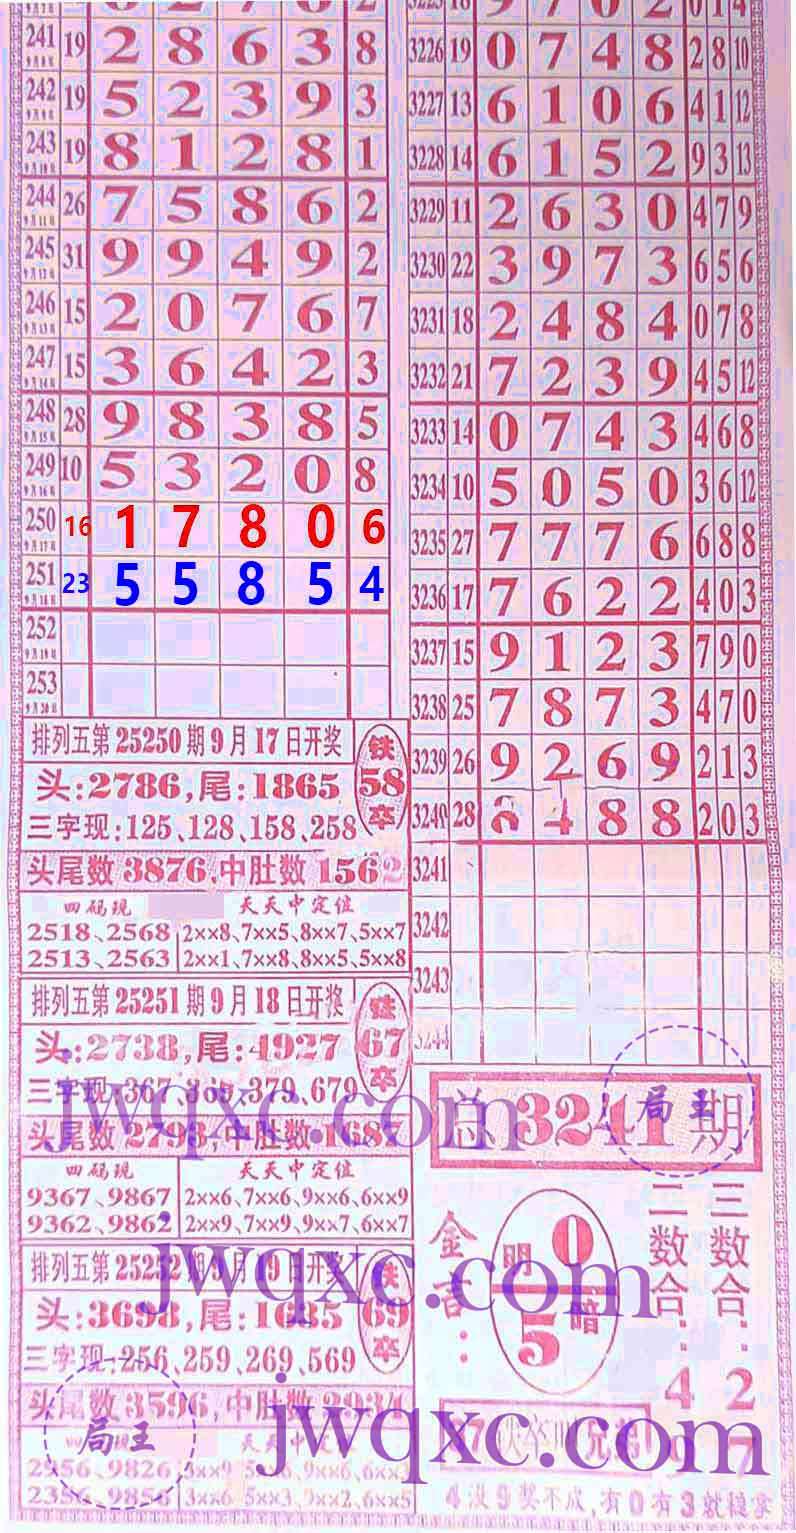 241 19 2 8 6 3 8
242 19 5 2 3 9 3
243 19 8 1 2 8 1
244 26 7 5 8 6 2
245 31 9 9 4 9 2
246 15 2 0 7 6 7
247 15 3 6 4 2 3
248 28 9 8 3 8 5
249 10 5 3 2 0 8
250 16 1 7 8 0 6
251 23 5 5 8 5 4
252
253
排列五第25250期9月17日开奖
头:2786,尾:1865
铁58卒
三字现:125、128、158、258
头尾数3876,中肚数1562
四码现 天天中定位
2518、2568 2××8、7××5、8××7、5××7
2513、2563 2××1、7××8、8××5、5××8
排列五第25251期9月18日开奖
头:2738,尾:4927
铁67卒
三字现:367、369、379、679
头尾数2793,中肚数1687
四码现 天天中定位
9367、9867 2××6、7××6、9××6、6××9
9362、9862 2××9、7××9、9××7、6××7
排列五第25252期9月19日开奖
头:3698,尾:1685
铁69卒
三字现:256、259、269、569
头尾数3596,中肚数2934
天天中定位
3226 19 0 7 4 8 2 8 10
3227 13 6 1 0 6 4 1 12
3228 14 6 1 5 2 9 3 13
3229 11 2 6 3 0 4 7 9
3230 22 3 9 7 3 6 5 6
3231 18 2 4 8 4 0 7 8
3232 21 7 2 3 9 4 5 12
3233 14 0 7 4 3 4 6 8
3234 10 5 0 5 0 3 6 12
3235 27 7 7 7 6 6 8 8
3236 17 7 6 2 2 4 0 3
3237 15 9 1 2 3 7 9 0
3238 25 7 8 7 3 4 7 0
3239 26 9 2 6 9 2 1 3
3240 28 8 4 8 8 2 0 3
3241
3242
3243
3244
总3241期
金吉:
明0
5暗
二数合:4 9
三数合:2 7
4没9奖不成,有0有3就稳拿
局王
局王
jwqxc.com
jwqxc.com
jwqxc.com